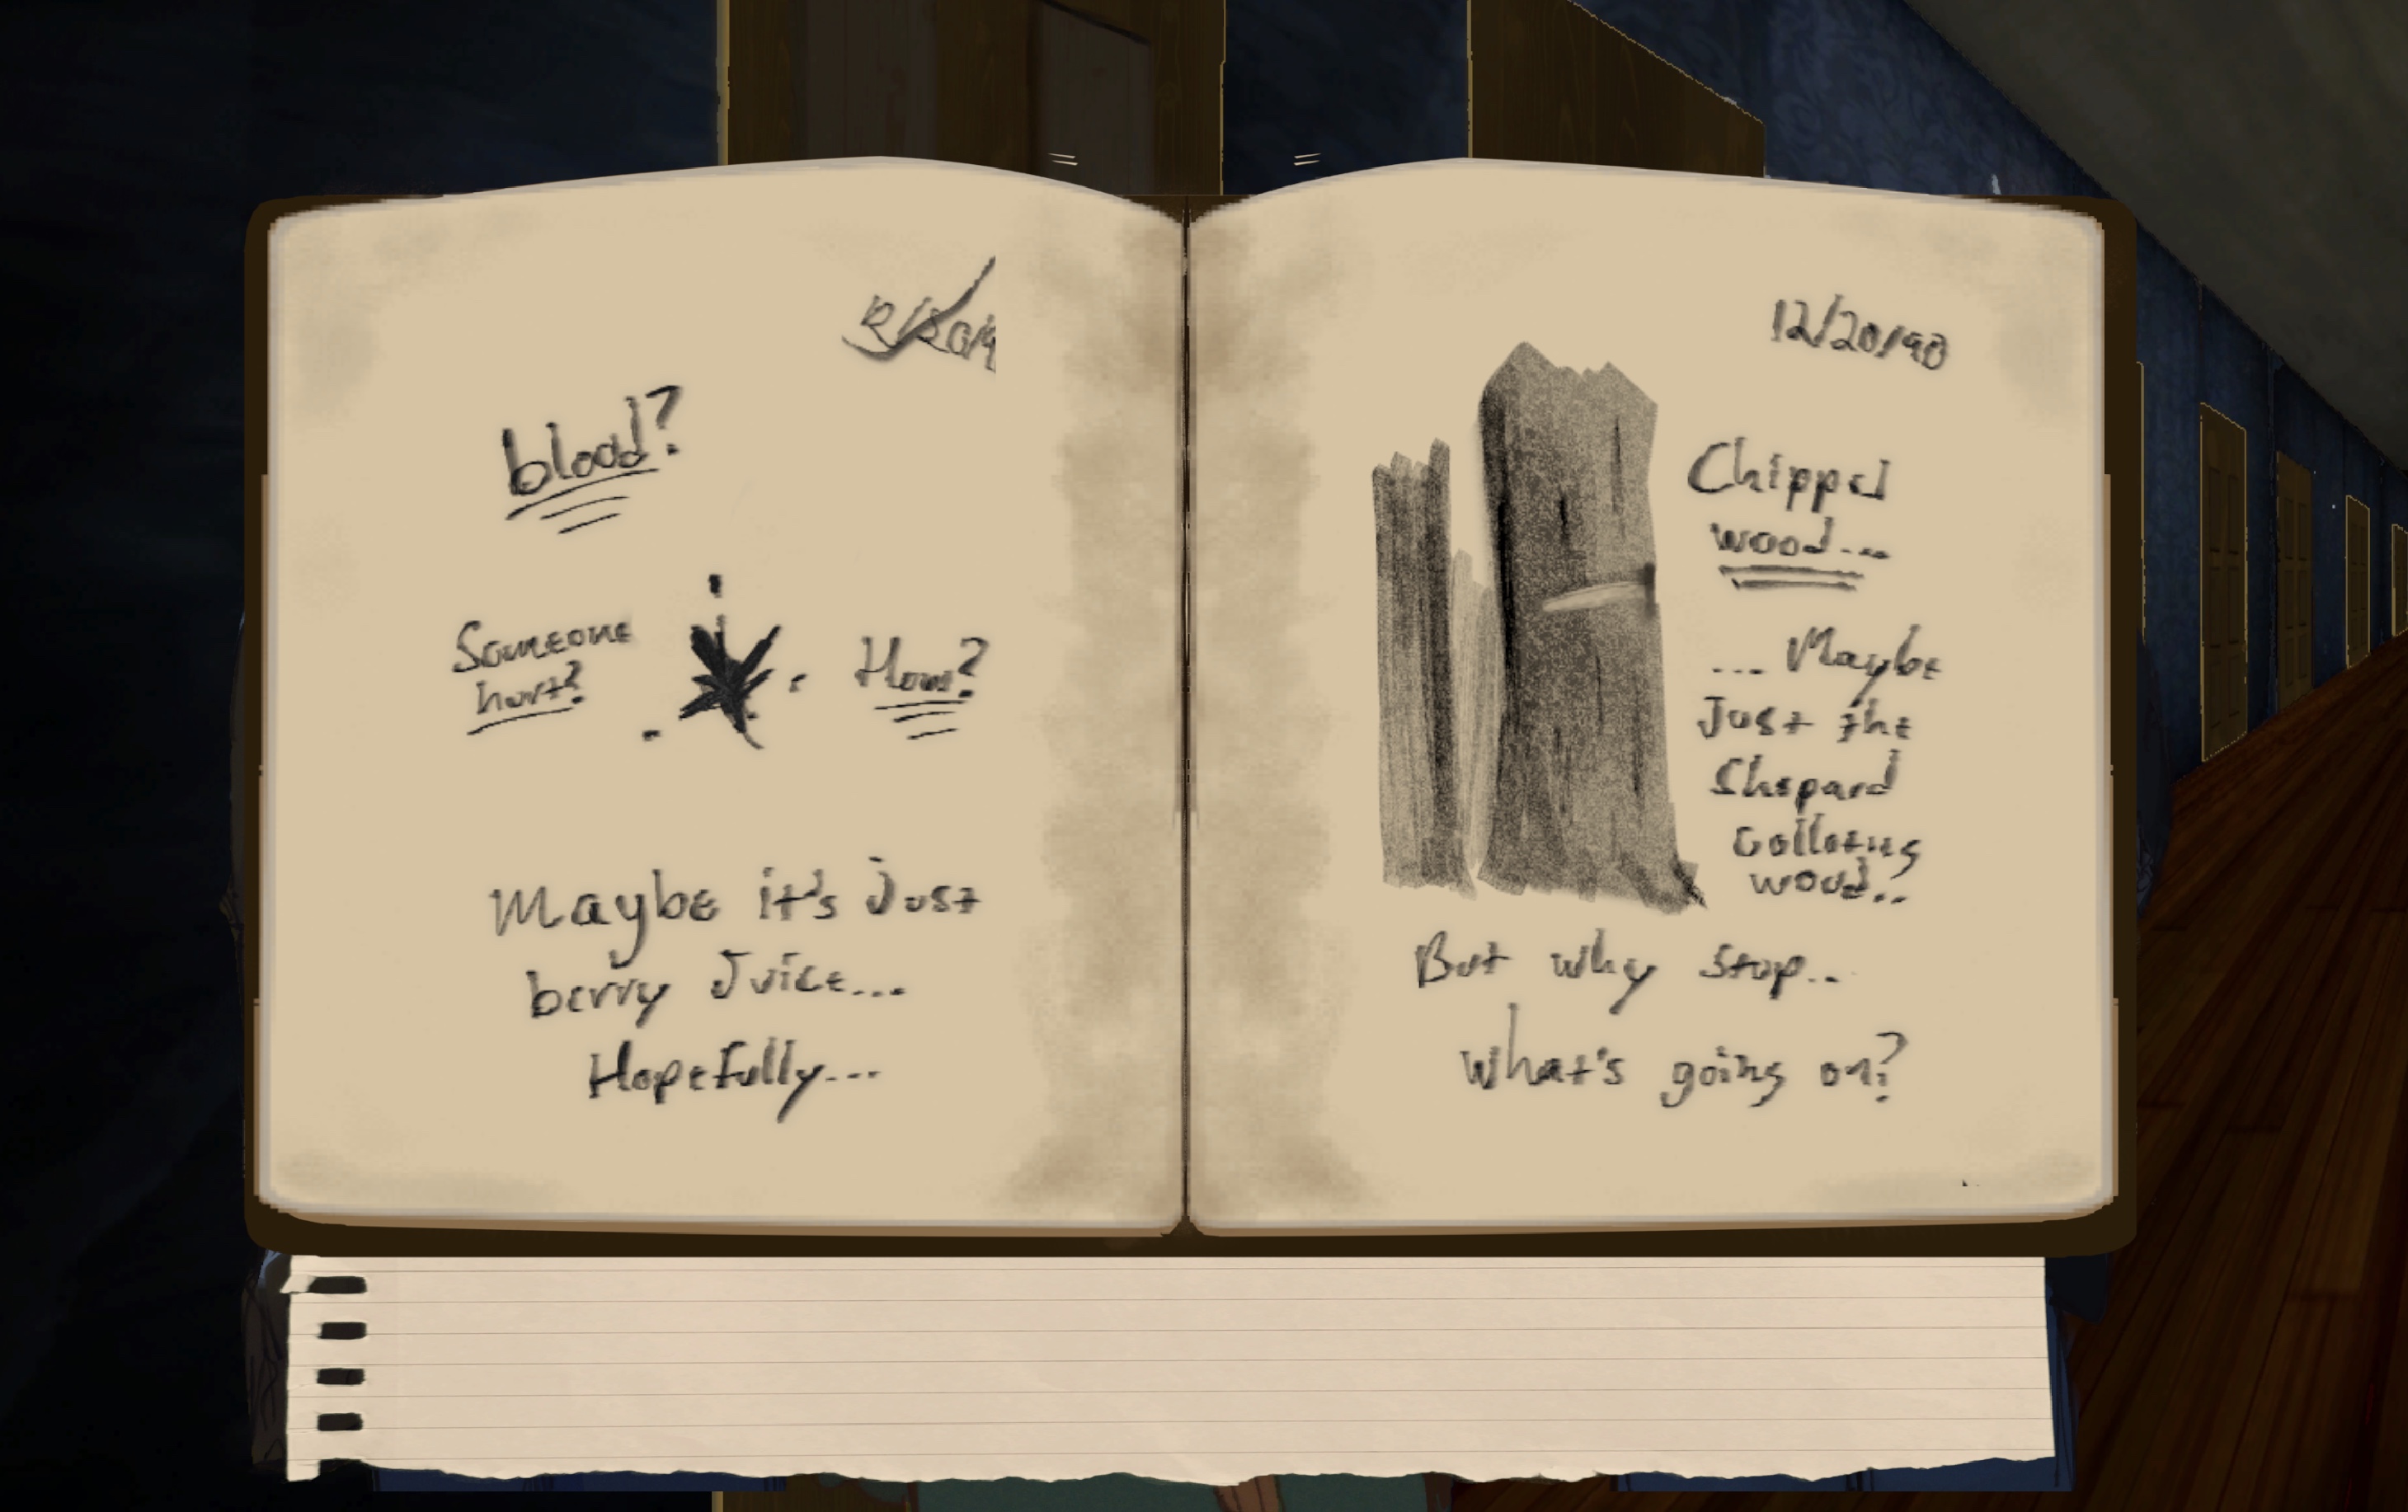 blood?
Someone
hurt?
How?
Maybe it's Just
berry Juice...
Hopefully...
12/20/90
Chipped
wood...
... Maybe
Just the
Shepard
wood..
But why stop..
What's going on?